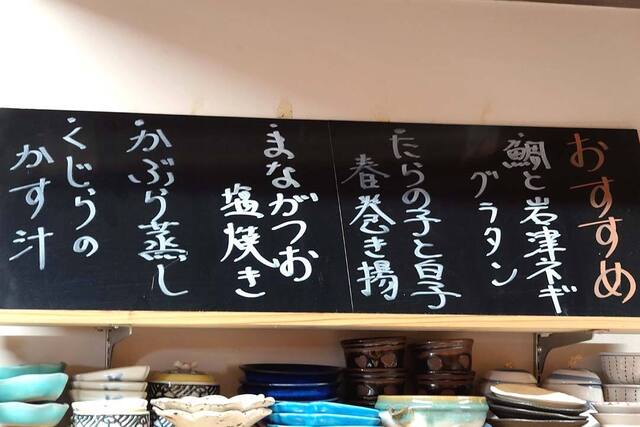 おすすめ
・鯛と岩津ネギ
グラタン
・たらの子と白子
春巻き揚
・まながつお
塩焼き
・かぶら蒸し
・くじらの
かす汁